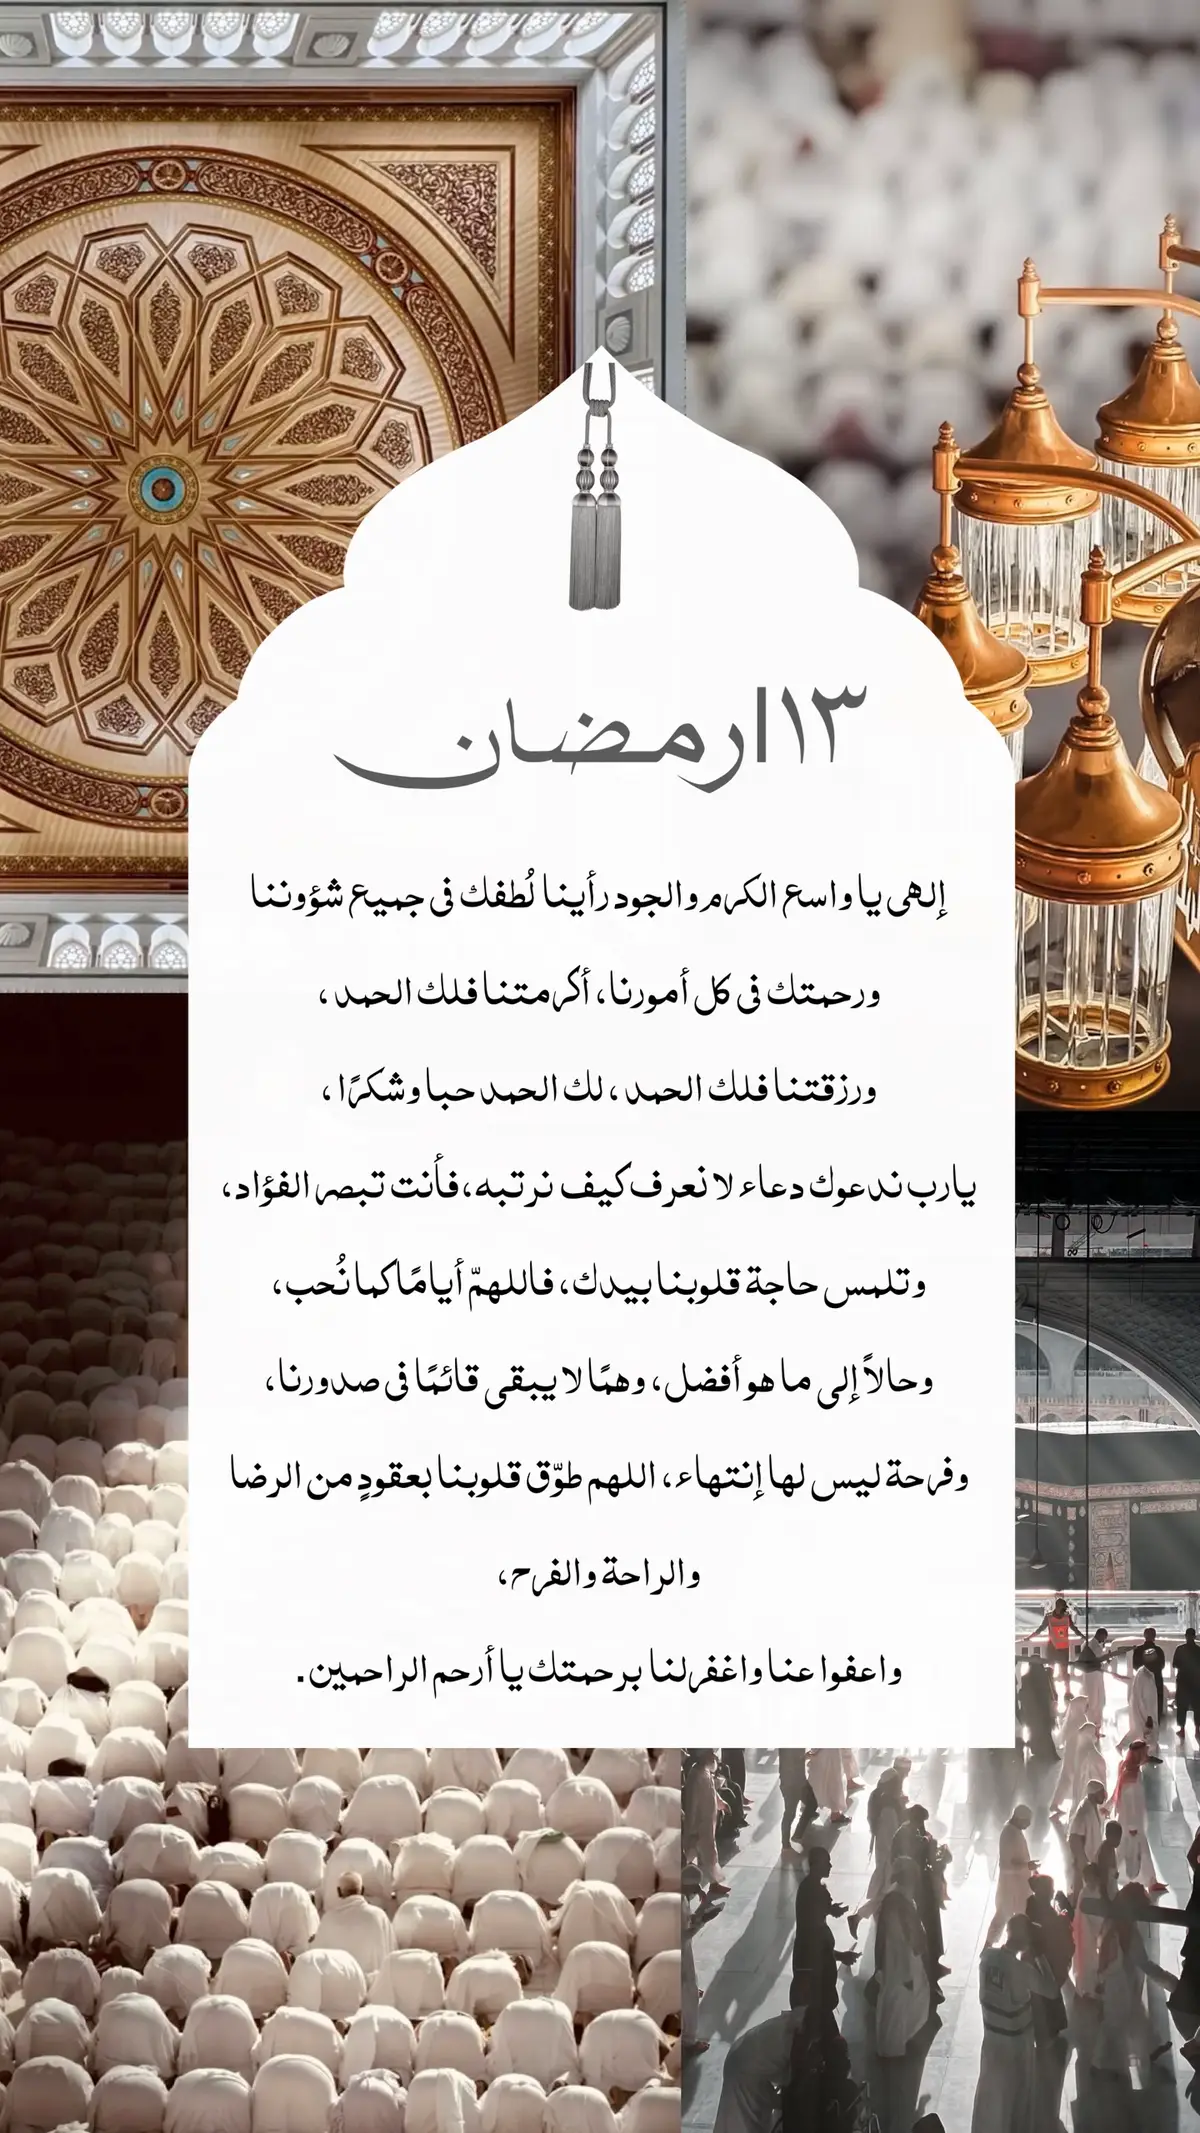 ١٣|رمضان
إلهي يا واسع الكرم والجود رأينا لُطفك في جميع شؤوننا
ورحمتك في كل أمورنا، أكرمتنا فلك الحمد،
ورزقتنا فلك الحمد، لك الحمد حبا وشكرًا،
يارب ندعوك دعاء لا نعرف كيف نرتبه، فأنت تبصر الفؤاد،
وتلمس حاجة قلوبنا بيدك، فاللهمّ أيامًا كما نُحب،
وحالاً إلى ما هو أفضل، وهمًا لا يبقى قائمًا في صدورنا،
وفرحة ليس لها إنتهاء، اللهم طوّق قلوبنا بعقودٍ من الرضا
والراحة والفرح،
واعفوا عنا واغفر لنا برحمتك يا أرحم الراحمين.